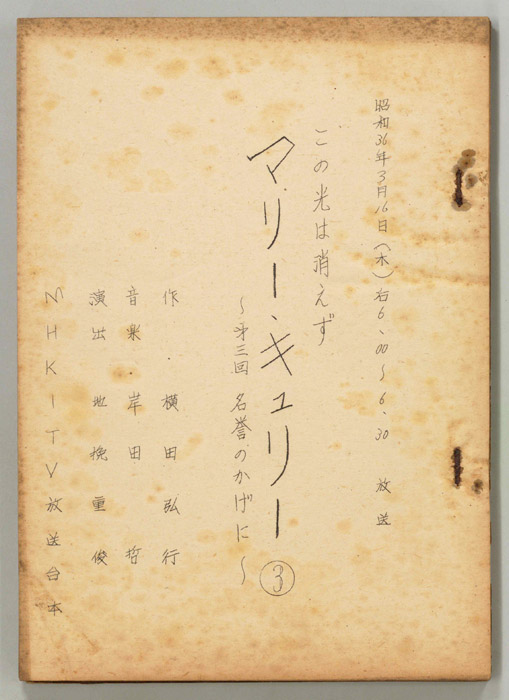 昭和36年3月16日(木)右6、00～6、30 放送
この光は消えず
マリー・キュリー③
～第三回 名誉のかげに～
作・横田弘行
音楽 岸田 哲
演出 地挽重俊
NHKITV放送台本